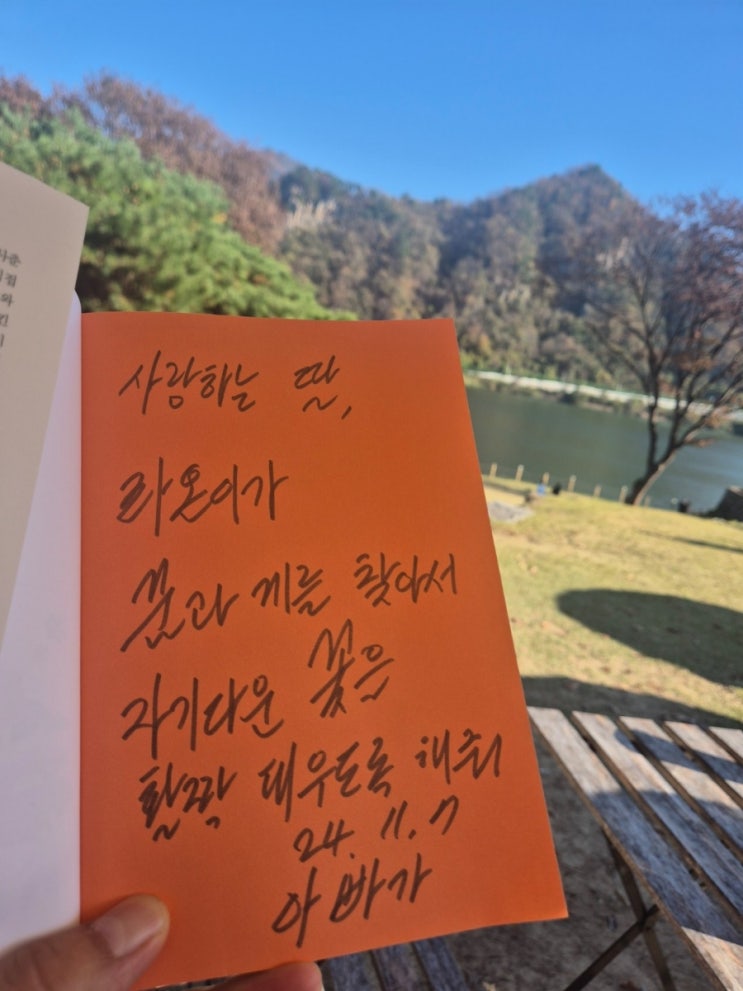 사랑하는 딸,
라온이가
꿈과 끼를 찾아서
자기다운 꽃은
활짝 피우도록 해줘
24. 11. 7
아빠가